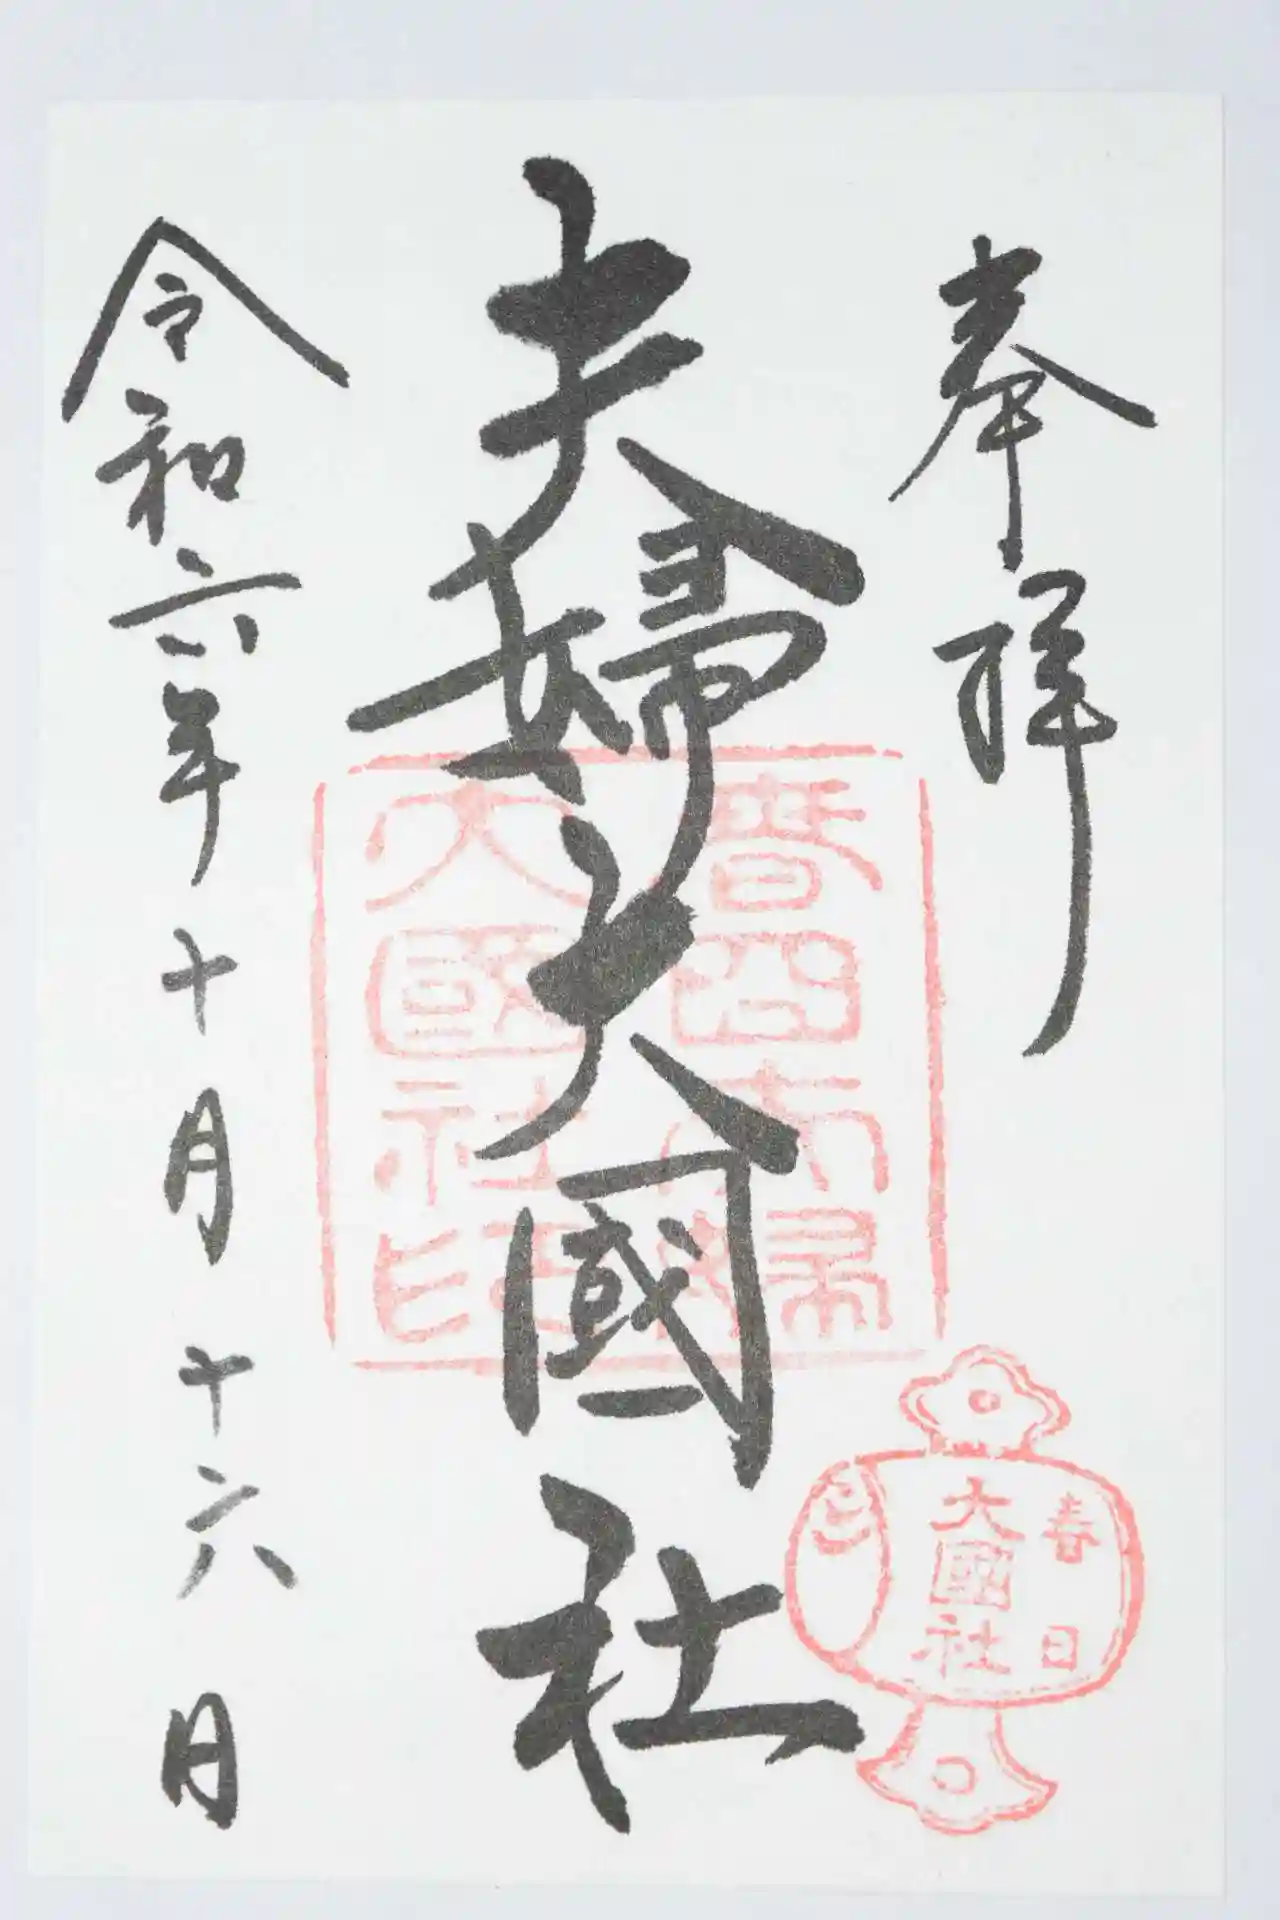 奉拝
夫婦大國社
春日
大國社
春日夫婦
大國社印
令和六年十月十六日